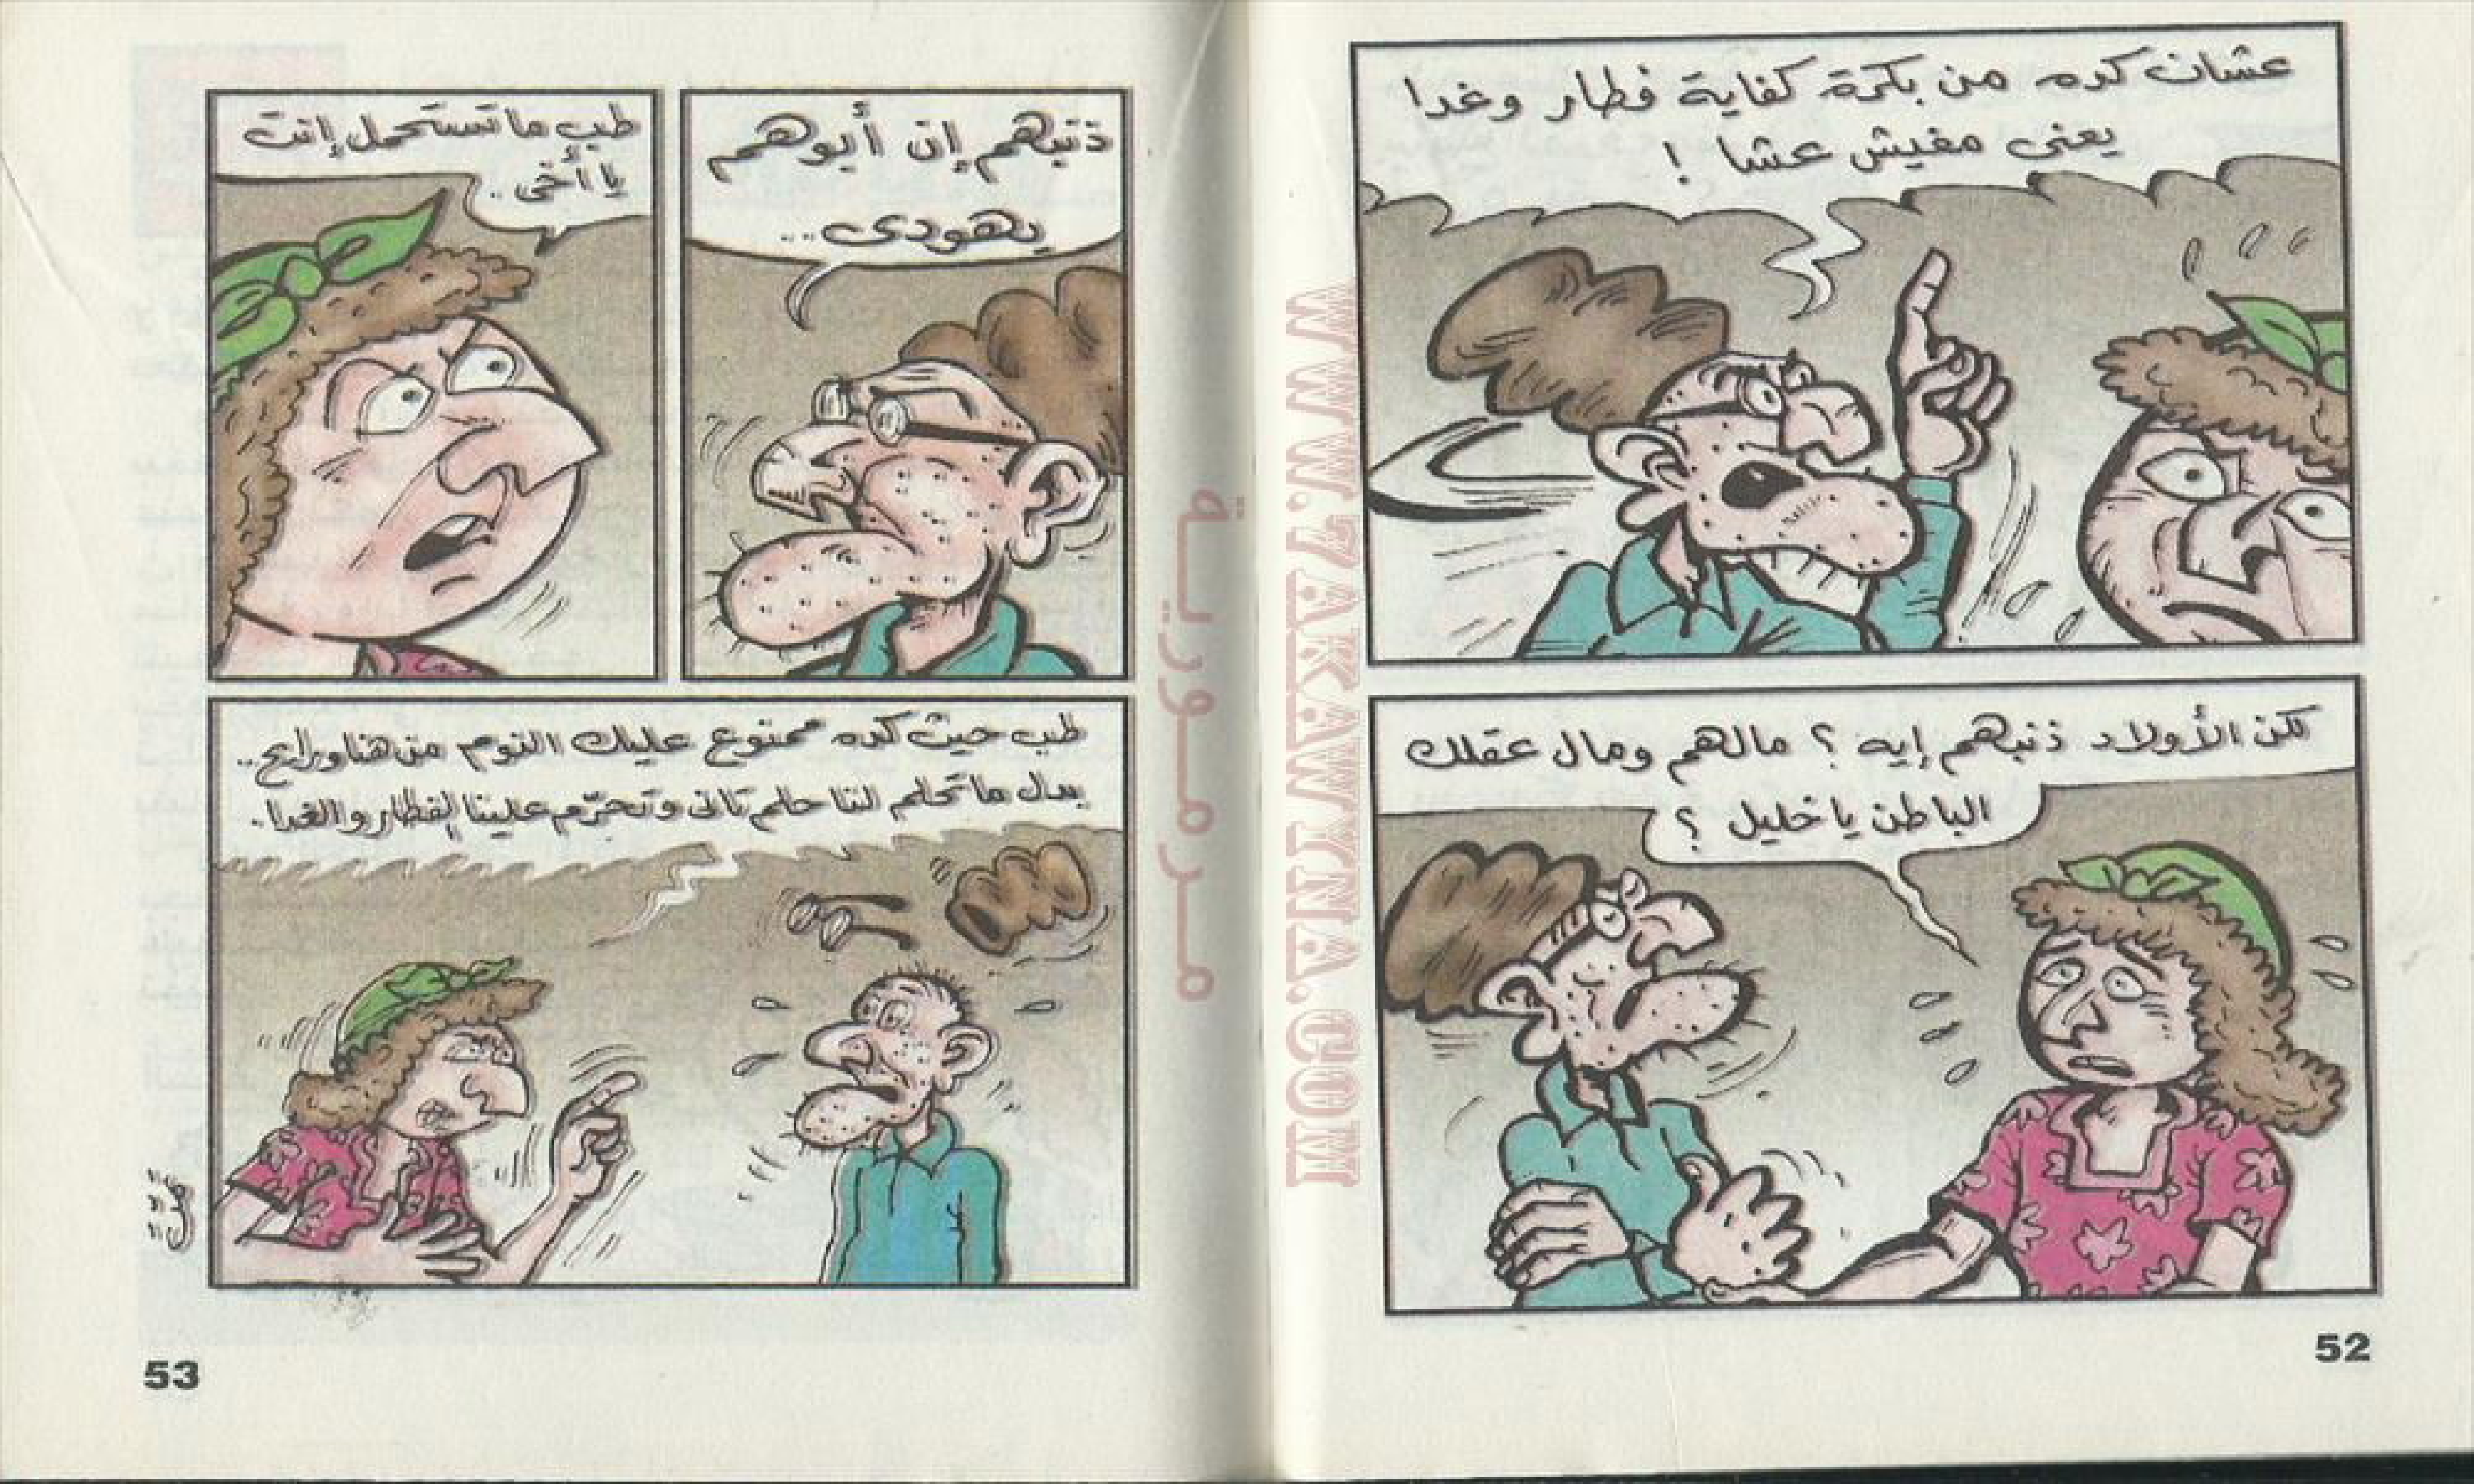 عشان كده من بكرة كفاية فطار وغدا
يعنى مفيش عشا !
لكن الأولاد ذنبهم إيه ؟ مالهم ومال عقلك
الباطن يا خليل ؟
52
ذنبهم إن أبوهم
يهودى..
طب ما تستحمل إنت
يا أخى ..
طب حيث كده ممنوع عليك النوم من هنا ورايح..
بدل ما تحلم لنا حلم تانى وتحرّم علينا الفطار والغدا.
53
مرمورية
WWW.7AKAWYINA.COM